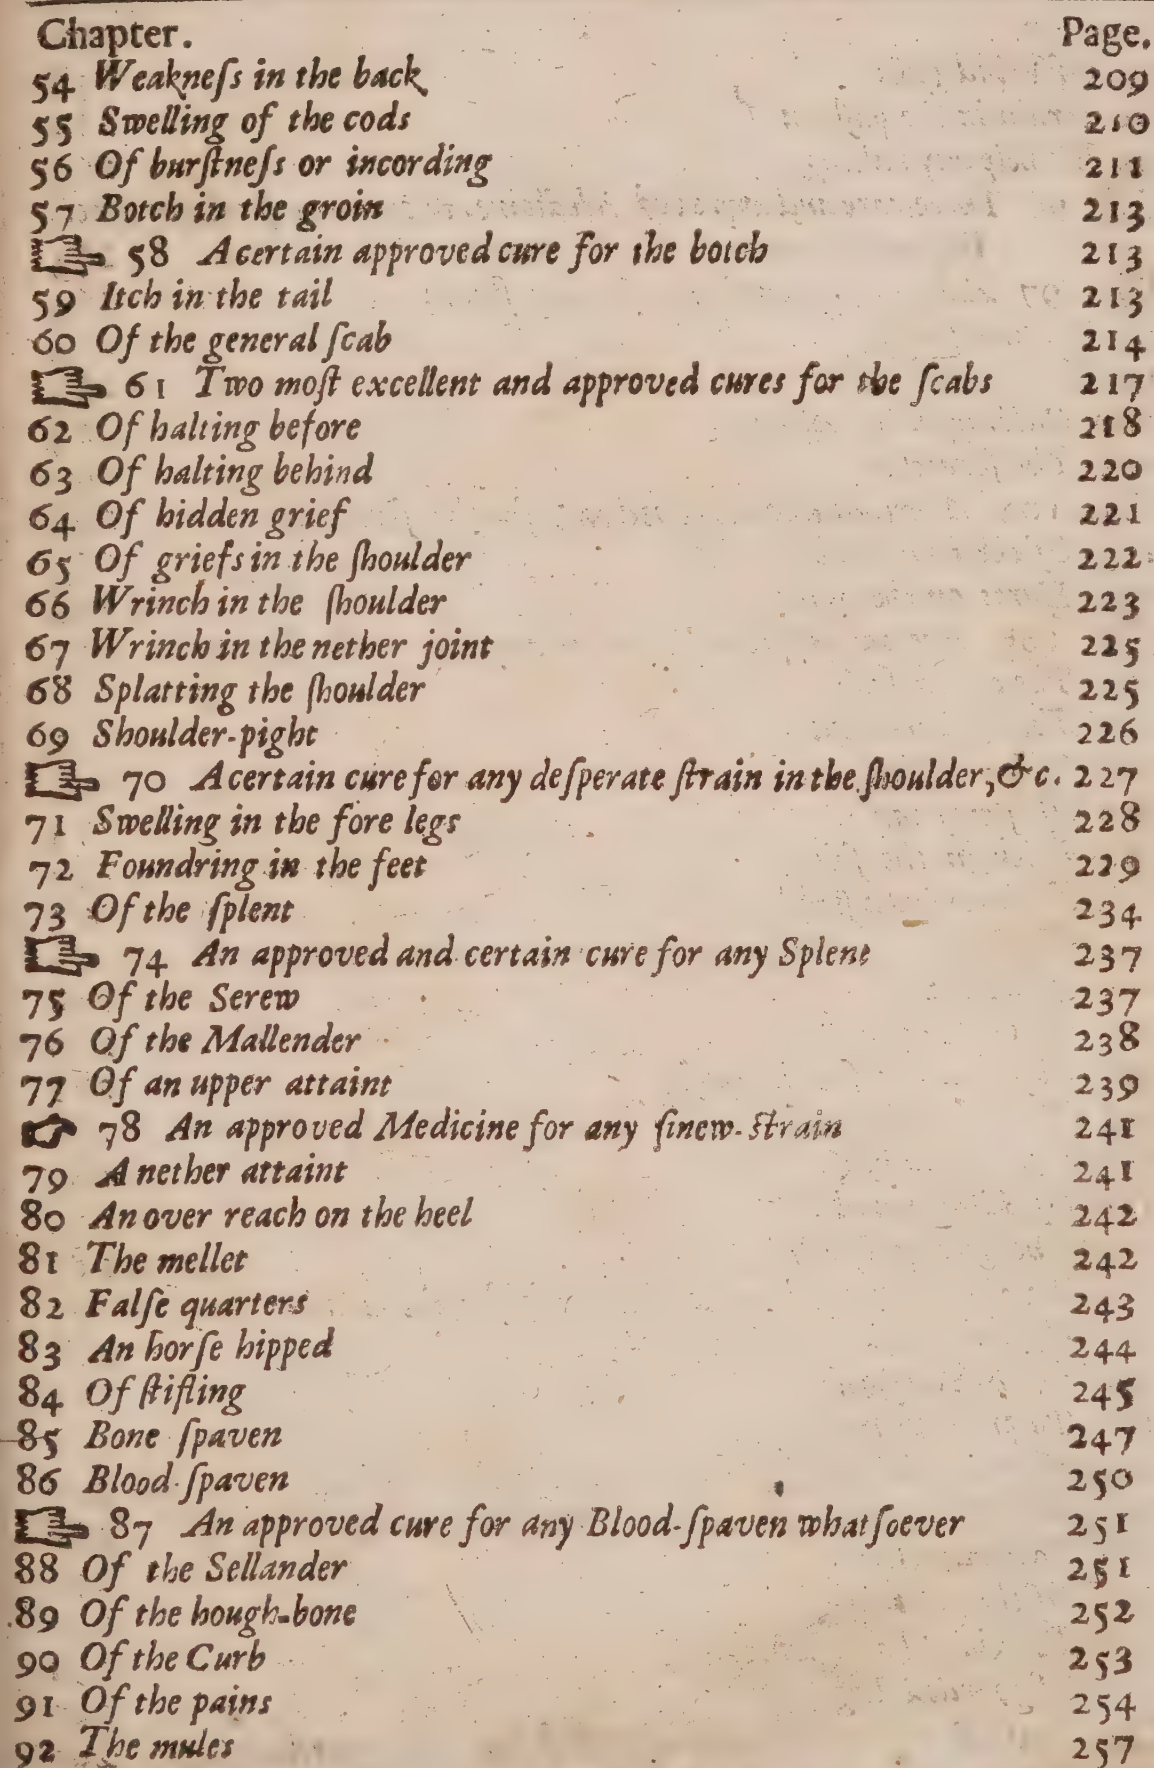 Chapter. Page.
54 Weakneſs in the back 209
55 Swelling of the cods 210
56 Of burſtneſs or incording 211
57 Botch in the groin 213
☞ 58 A certain approved cure for the botch 213
59 Itch in the tail 213
60 Of the general ſcab 214
☞ 61 Two moſt excellent and approved cures for the ſcabs 217
62 Of halting before 218
63 Of halting behind 220
64 Of hidden grief 221
65 Of griefs in the ſhoulder 222
66 Wrinch in the ſhoulder 223
67 Wrinch in the nether joint 225
68 Splatting the ſhoulder 225
69 Shoulder-pight 226
☞ 70 A certain cure for any deſperate ſtrain in the ſhoulder, &c. 227
71 Swelling in the fore legs 228
72 Foundring in the feet 229
73 Of the ſplent 234
☞ 74 An approved and certain cure for any Splent 237
75 Of the Serew 237
76 Of the Mallender 238
77 Of an upper attaint 239
☞ 78 An approved Medicine for any ſinew-ſtrain 241
79 A nether attaint 241
80 An over reach on the heel 242
81 The mellet 242
82 Falſe quarters 243
83 An horſe hipped 244
84 Of ſtifling 245
85 Bone ſpaven 247
86 Blood-ſpaven 250
☞ 87 An approved cure for any Blood-ſpaven whatſoever 251
88 Of the Sellander 251
89 Of the hough-bone 252
90 Of the Curb 253
91 Of the pains 254
92 The mules 257